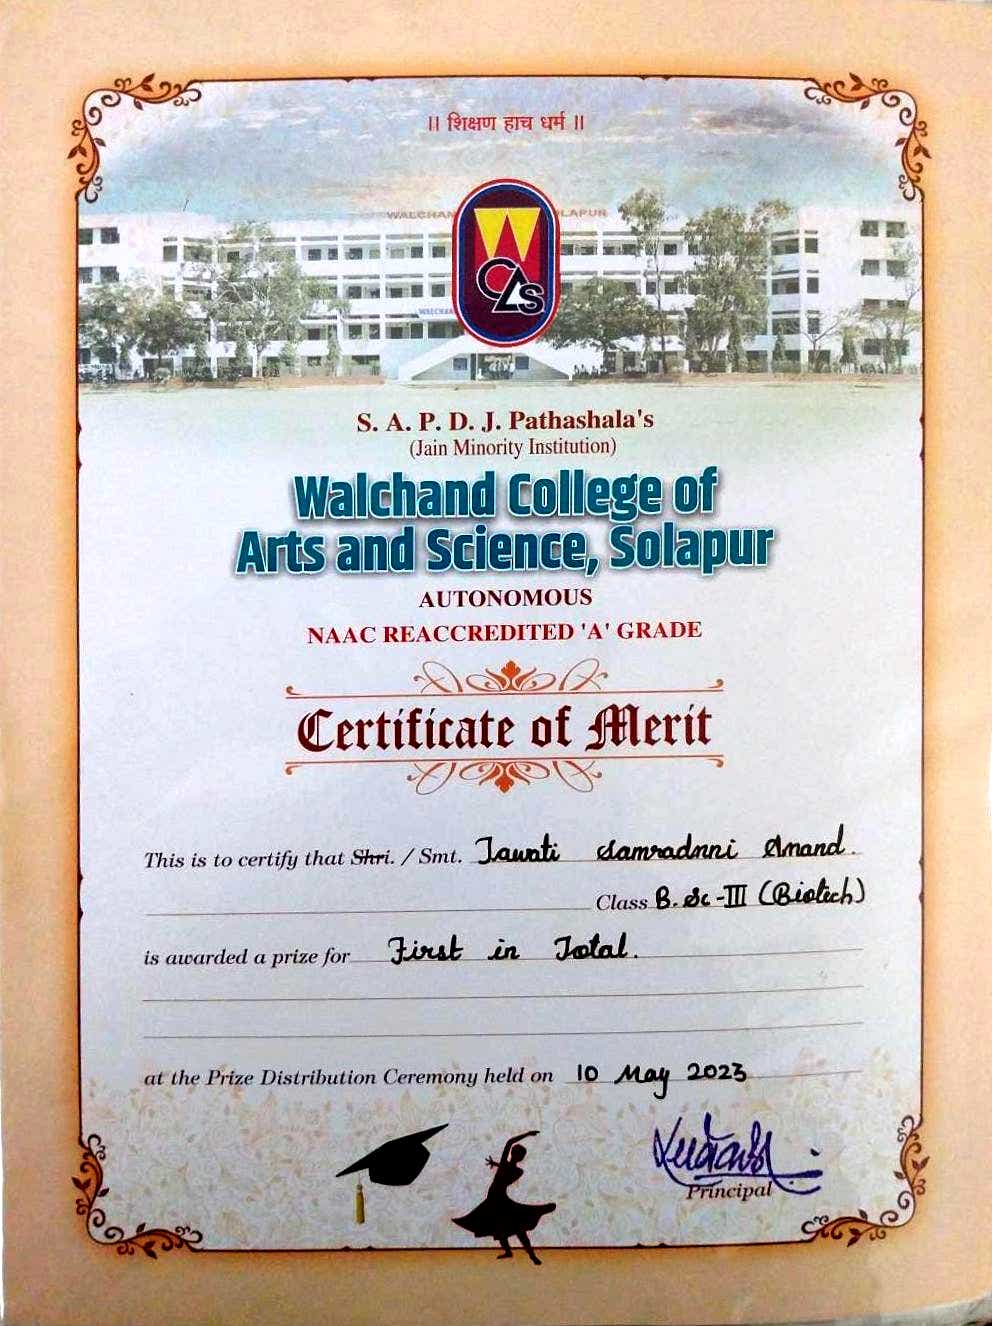 ॥ शिक्षण हाच धर्म ॥
WALCHAN OLAPUR
WCAS
WALCHAN
S. A. P. D. J. Pathashala's
(Jain Minority Institution)
Walchand College of
Arts and Science, Solapur
AUTONOMOUS
NAAC REACCREDITED 'A' GRADE
Certificate of Merit
This is to certify that Shri. / Smt. Tawati Samradnni Anand.
Class B.Sc-III (Biotech)
is awarded a prize for First in Total.
at the Prize Distribution Ceremony held on 10 May 2023
Principal